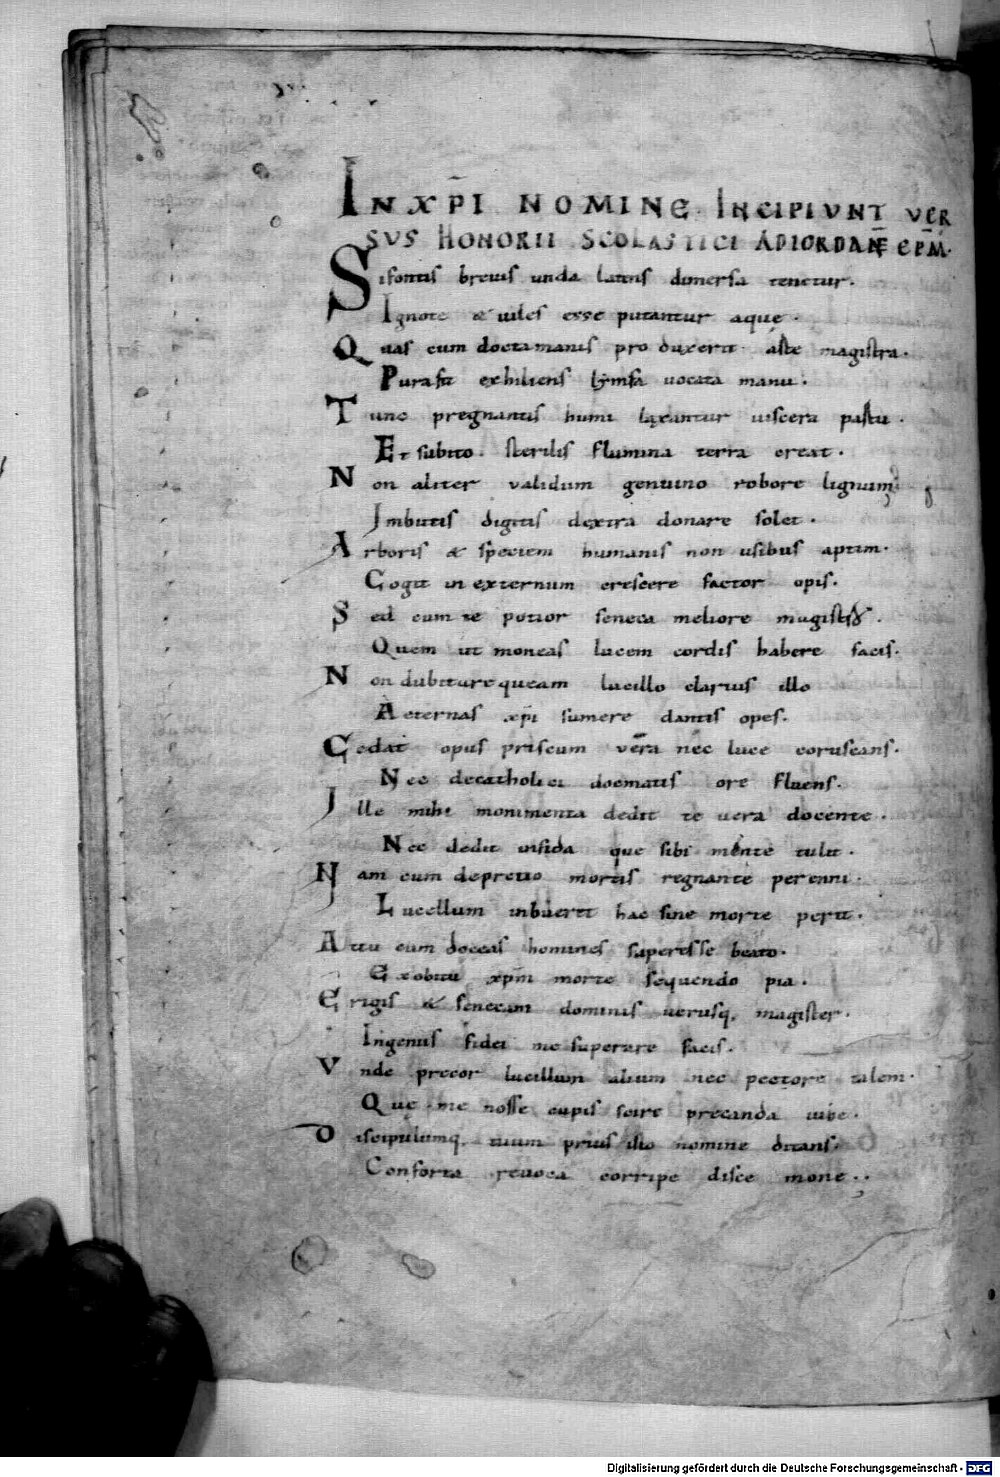 IN XP̄I NOMINE INCIPIUNT VER
SVS HONORII SCOLASTICI AD IORDANĒ EP̄M.
Si fontis breuis unda latens dimersa tenetur.
Ignote & uiles esse putantur aquę.
Quas cum docta manus pro duxerit aste magistra.
Pura fit exhiliens lymfa uocata manu.
Tunc pregnantis humi laxantur uiscera pastu.
Et subito sterilis flumina terra creat.
Non aliter validum genuino robore lignum
Imbutis digitis dextra donare solet.
Arboris & speciem humanis non usibus aptam.
Cogit in externum crescere factor opis.
Sed cum te potior seneca meliore magistro.
Quem ut moneas lucem cordis habere facis.
Non dubitare queam lucillo clarius illo
Aeternas xp̄i sumere dantis opes.
Cedat opus priscum vera nec luce coruscans.
Nec de catholici docmatis ore fluens.
Ille mihi monimenta dedit te uera docente.
Nec dedit infida que sibi mente tulit.
Nam cum depretio mortis regnante perenni.
Lucellum inbuerit hac sine morte perit.
At tu cum doceas homines superesse beato.
Ex obitu xp̄m morte sequendo pia.
Erigis & senecam dominis uerusq, magister.
Ingenus fidei me superare facis.
Vnde precor lucillum alium nec pectore talem.
Que me nosse cupis scire precanda iube.
Discipulumq, tuum prius isto nomine ditans.
Conforta reuoca corripe disce mone.
Digitalisierung gefördert durch die Deutsche Forschungsgemeinschaft - DFG